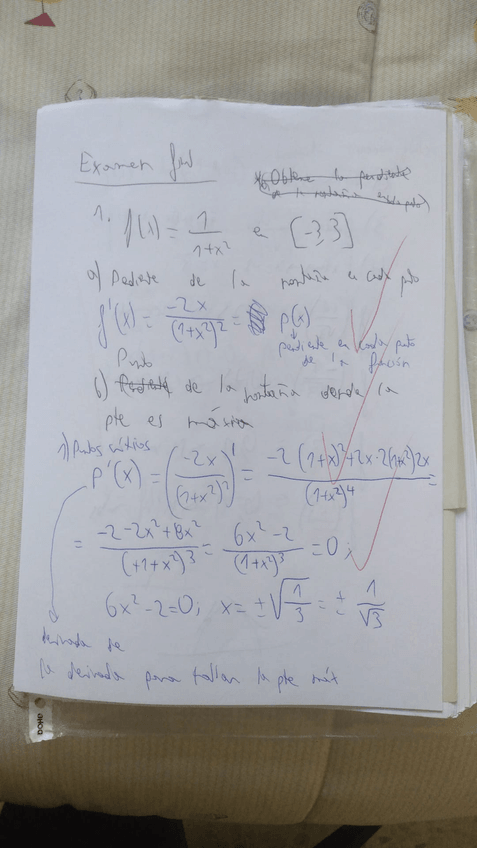 Examen final
Obtene la pendiente
de la montaña en cada pto
1. f(x) = 1/(1+x²) e [-3,3]
a) Pediete de la montaña en cada pto
f'(x) = -2x/(1+x²)² = p(x)
pendiente en cada pto
de la función
Punto
b) Pendiente de la montaña desde la
pte es máxima
1) Ptos críticos
p'(x) = (-2x/(1+x²)²)' = (-2(1+x)²+2x·2(1+x²)2x)/(1+x²)⁴ =
= (-2-2x²+8x²)/(+1+x²)³ = (6x²-2)/(1+x²)³ = 0;
6x²-2=0; x = ±√(1/3) = ± 1/√3
derivada de
la derivada para hallar la pte máx
DOHE